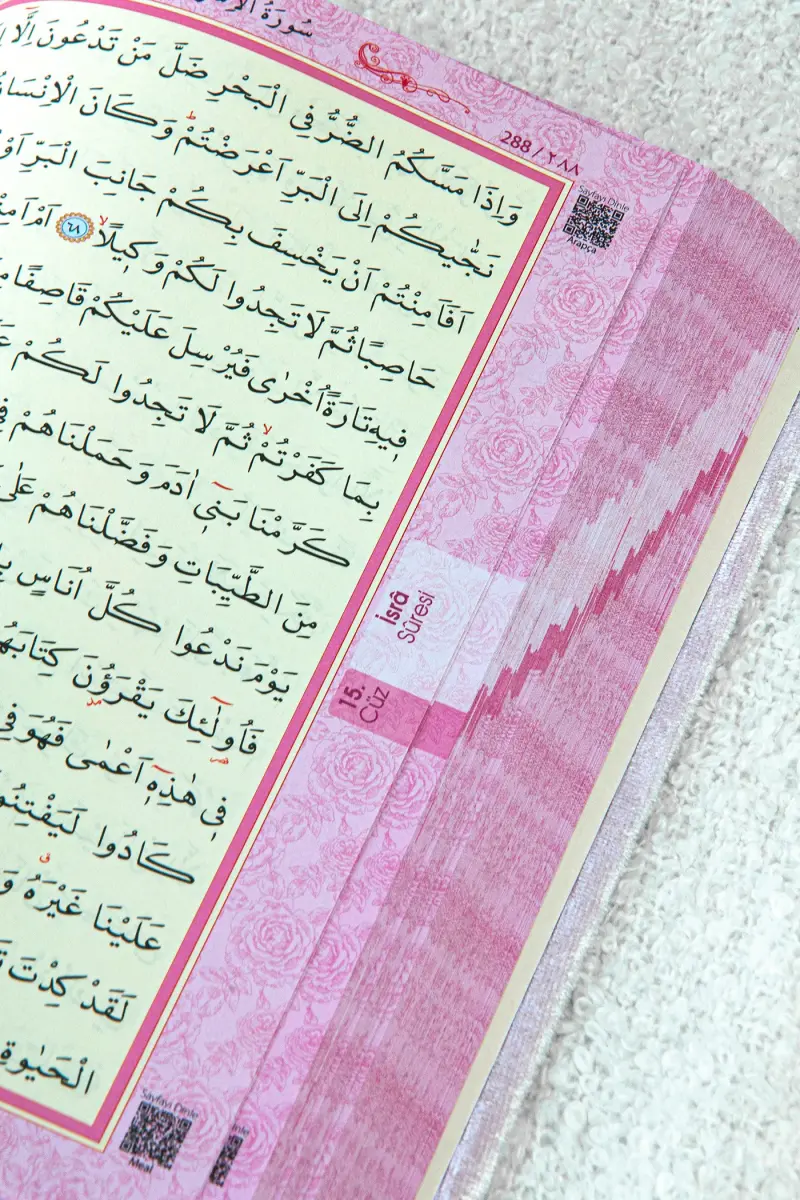 سُورَةُ
288 / ٢٨٨
Sayfayı Dinle
Arapça
وَاِذَا مَسَّكُمُ الضُّرُّ فِي الْبَحْرِ ضَلَّ مَنْ تَدْعُونَ اِلَّٓا
نَجّٰيكُمْ اِلَى الْبَرِّ اَعْرَضْتُمْۜ وَكَانَ الْاِنْسَانُ
اَفَاَمِنْتُمْ اَنْ يَخْسِفَ بِكُمْ جَانِبَ الْبَرِّ اَوْ
حَاصِبًا ثُمَّ لَا تَجِدُوا لَكُمْ وَكٖيلًاۙ ٦٨ اَمْ اَمِنْتُمْ
فٖيهِ تَارَةً اُخْرٰى فَيُرْسِلَ عَلَيْكُمْ قَاصِفًا مِنَ
بِمَا كَفَرْتُمْۙ ثُمَّ لَا تَجِدُوا لَكُمْ
كَرَّمْنَا بَنٖٓي اٰدَمَ وَحَمَلْنَاهُمْ فِي
مِنَ الطَّيِّبَاتِ وَفَضَّلْنَاهُمْ عَلٰى
يَوْمَ نَدْعُوا كُلَّ اُنَاسٍ
فَاُو۬لٰٓئِكَ يَقْرَؤُ۫نَ كِتَابَهُمْ
فٖي هٰذِهٖٓ اَعْمٰى فَهُوَ فِي
كَادُوا لَيَفْتِنُونَكَ
عَلَيْنَا غَيْرَهُۗ
لَقَدْ كِدْتَ
الْحَيٰوةِ
İsrâ
Sûresi
15.
Cüz
Sayfayı Dinle
Meal